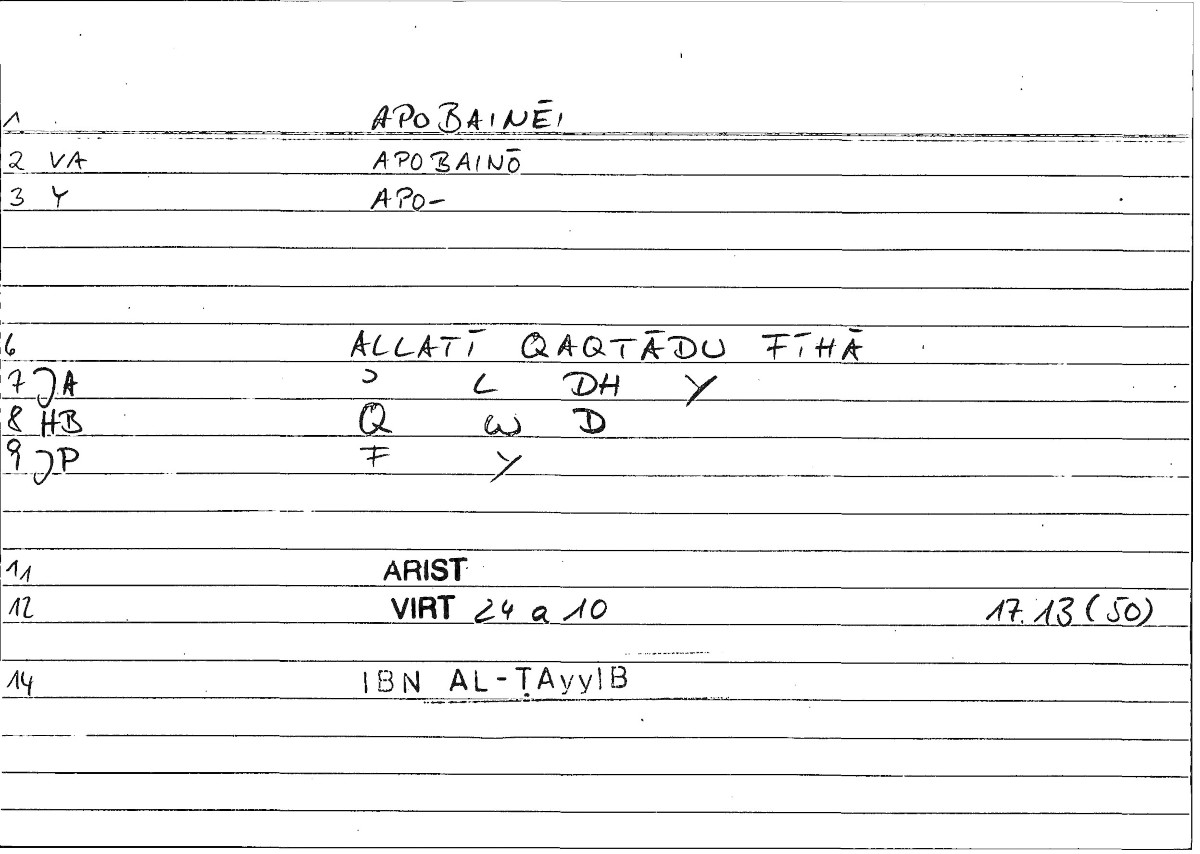 1 APOBAINĒI
2 VA APOBAINŌ
3 Y APO-
6 ALLATĪ QAQTĀDU FĪHĀ
7 JA ʾ L DH Y
8 HB Q W D
9 JP F Y
11 ARIST
12 VIRT 24 a 10 17.13 (50)
14 IBN AL-ṬAyyIB